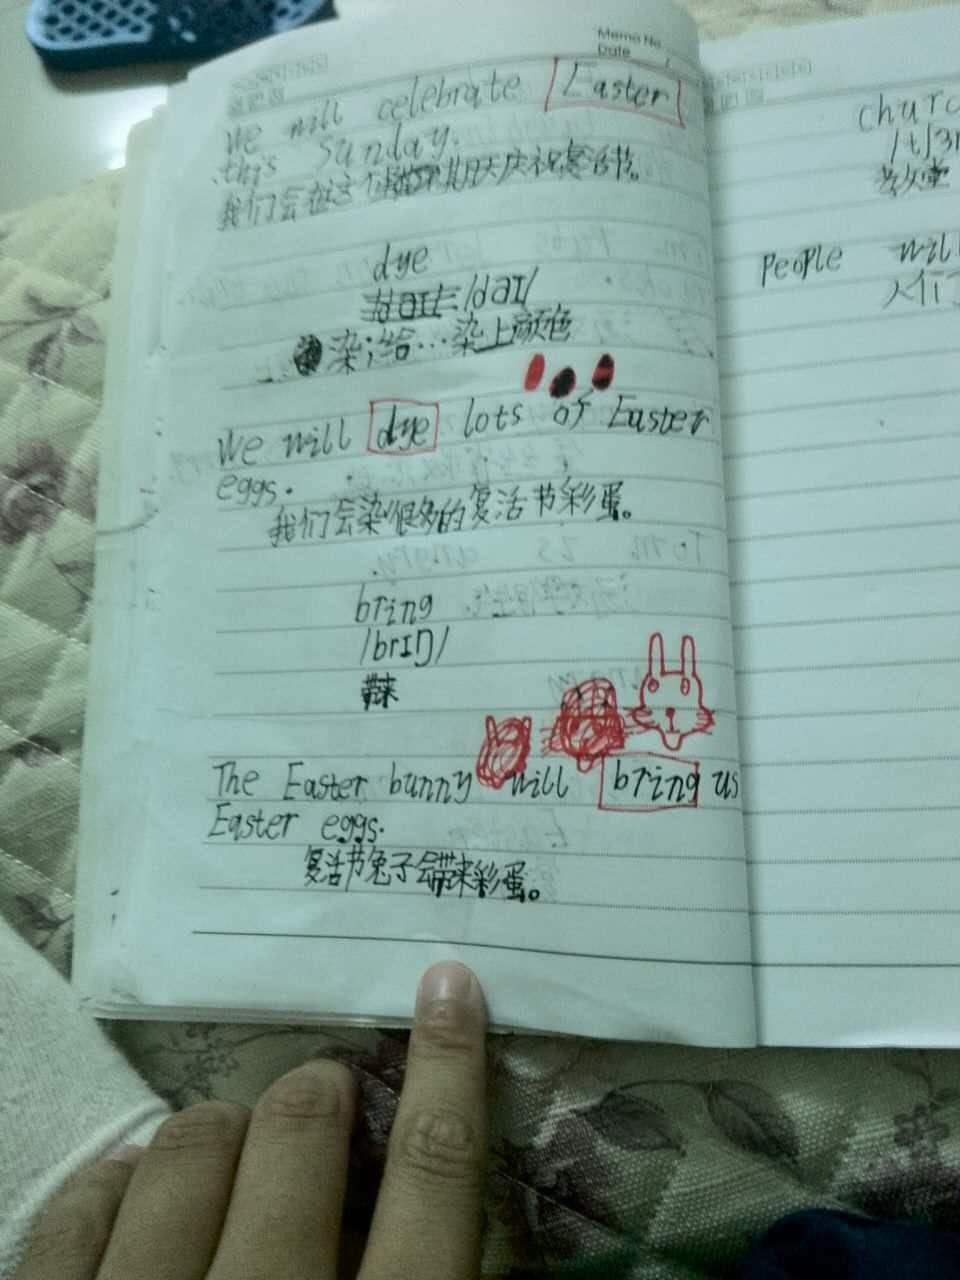 Memo No.
Date
We will celebrate Easter
this Sunday.
我们会在这个星期天庆祝复活节。
dye
/daɪ/
染;给…染上颜色
We will dye lots of Easter
eggs.
我们会染很多的复活节彩蛋。
bring
/brɪŋ/
带来
The Easter bunny will bring us
Easter eggs.
复活节兔子会带来彩蛋。
教堂
People will
人们